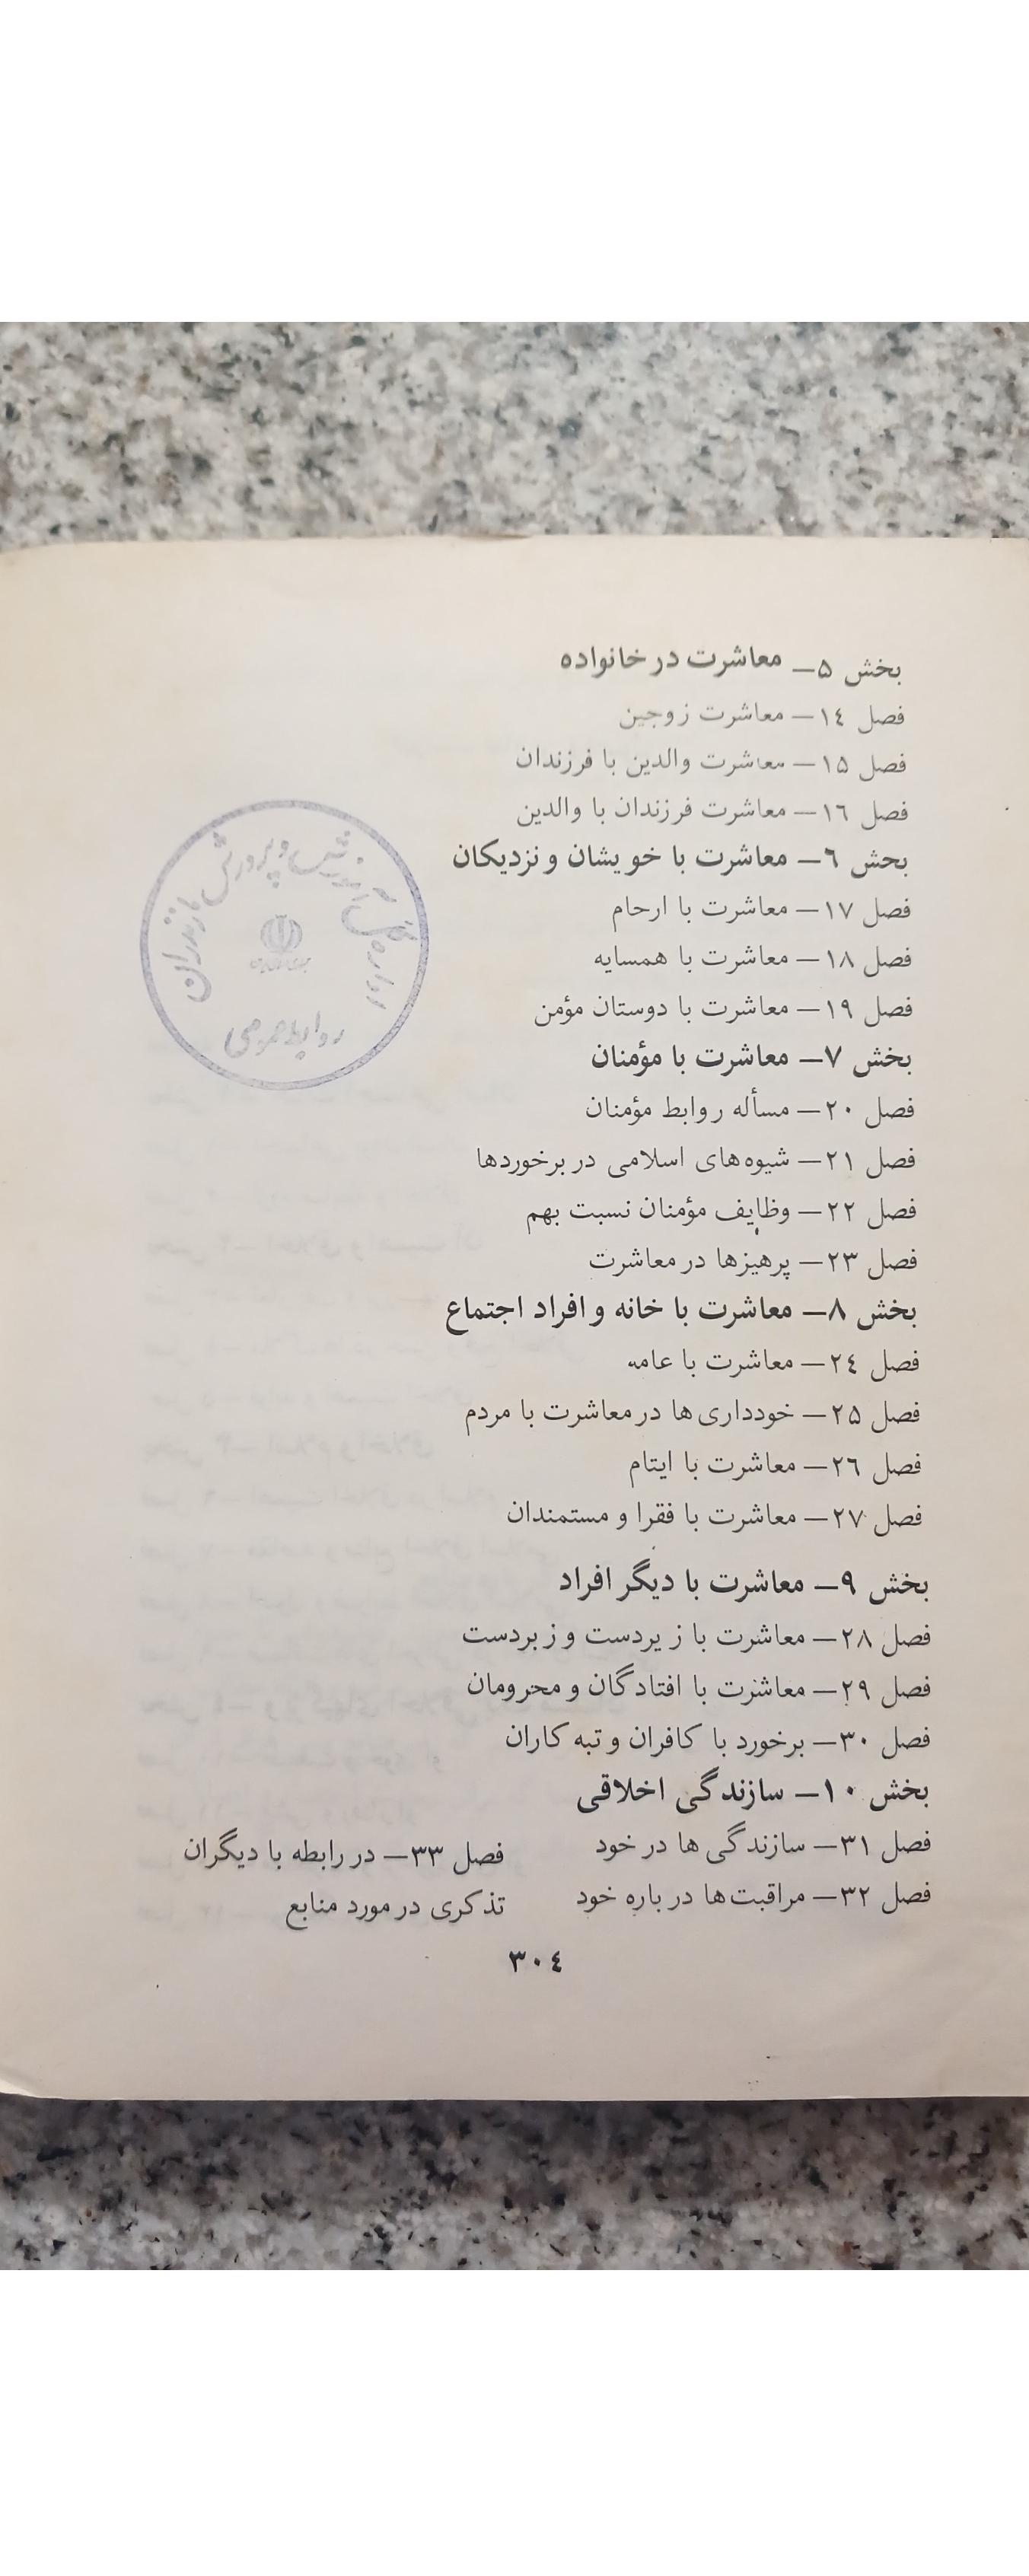 بخش ۵— معاشرت در خانواده
فصل ۱٤— معاشرت زوجین
فصل ۱۵— معاشرت والدین با فرزندان
فصل ۱٦— معاشرت فرزندان با والدین
بحش ٦— معاشرت با خویشان و نزدیکان
فصل ۱۷— معاشرت با ارحام
فصل ۱۸— معاشرت با همسایه
فصل ۱۹— معاشرت با دوستان مؤمن
بخش ۷— معاشرت با مؤمنان
فصل ۲۰— مسأله روابط مؤمنان
فصل ۲۱— شیوه‌های اسلامی در برخوردها
فصل ۲۲— وظایف مؤمنان نسبت بهم
فصل ۲۳— پرهیزها در معاشرت
بخش ۸— معاشرت با خانه و افراد اجتماع
فصل ۲٤— معاشرت با عامه
فصل ۲۵— خودداری‌ها در معاشرت با مردم
فصل ۲٦— معاشرت با ایتام
فصل ۲۷— معاشرت با فقرا و مستمندان
بخش ۹— معاشرت با دیگر افراد
فصل ۲۸— معاشرت با زیردست و زبردست
فصل ۲۹— معاشرت با افتادگان و محرومان
فصل ۳۰— برخورد با کافران و تبه کاران
بخش ۱۰— سازندگی اخلاقی
فصل ۳۱— سازندگی ها در خود
فصل ۳۲— مراقبت‌ها در باره خود
فصل ۳۳— در رابطه با دیگران
تذکری در مورد منابع
۳۰٤
اداره کل آموزش و پرورش مازندران
روابط عمومی